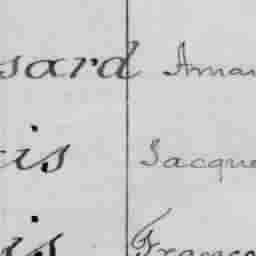 sard Aman
is Jacque
is Franço